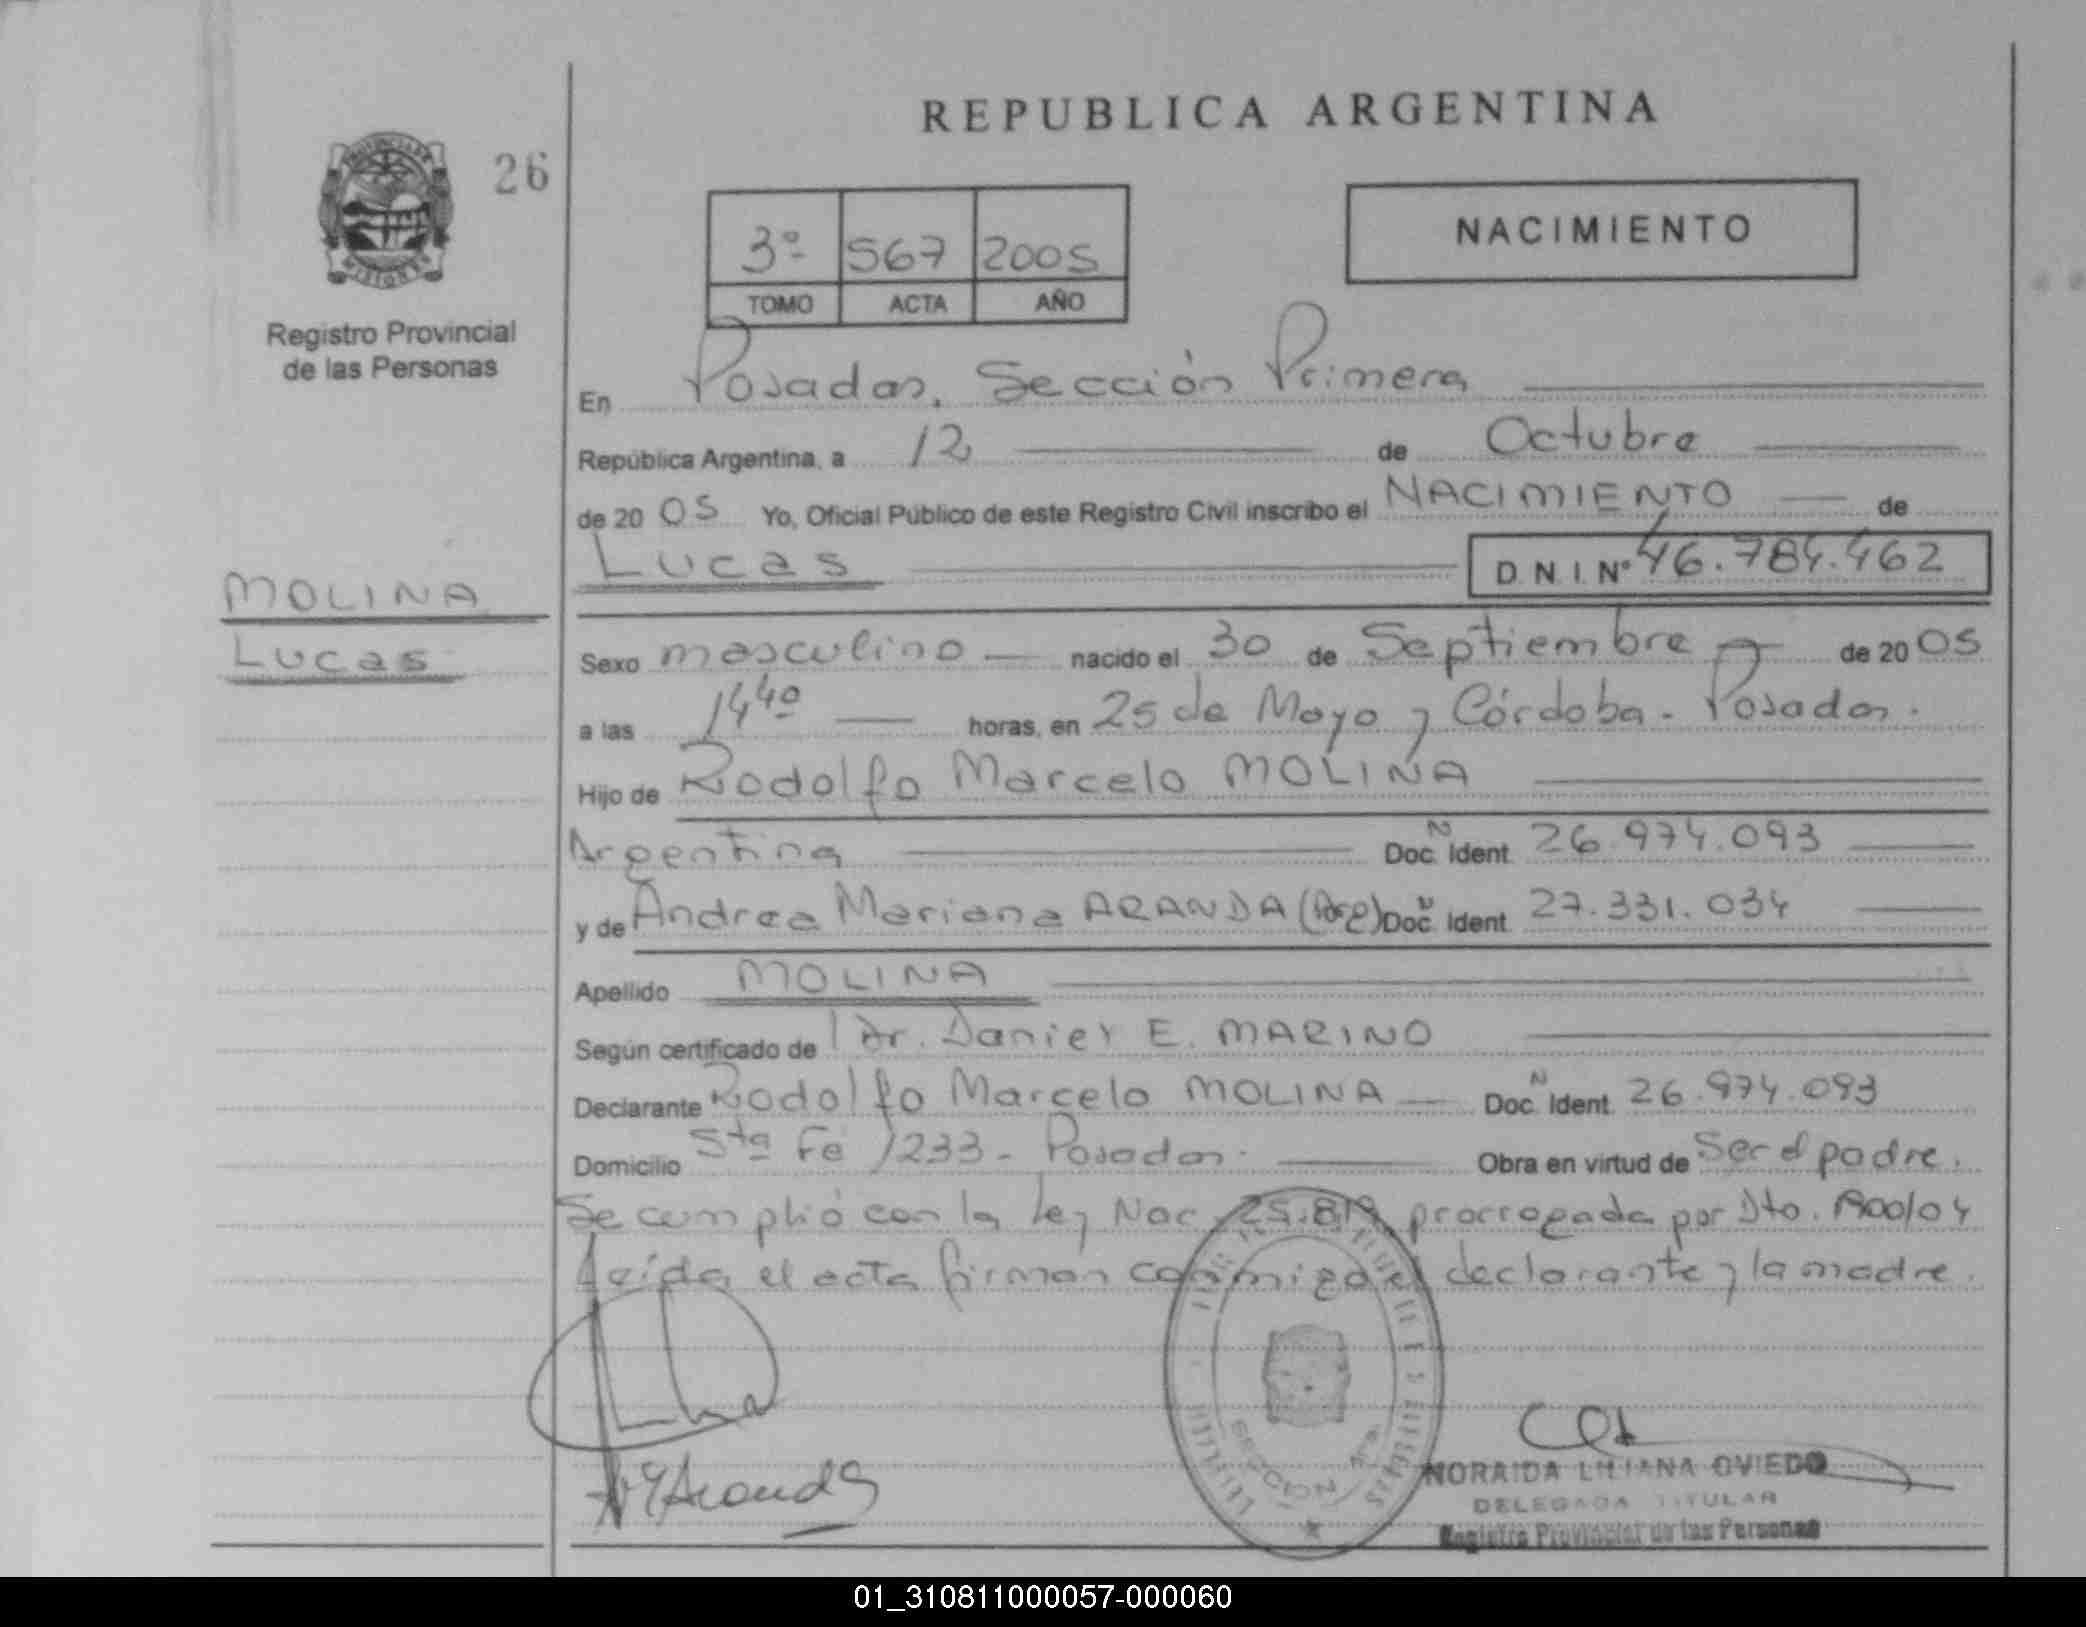 REPUBLICA ARGENTINA
26
Registro Provincial
de las Personas
3º 567 2005
TOMO ACTA AÑO
NACIMIENTO
En Posadas, Sección Primera
República Argentina, a 12 de Octubre
de 2005 Yo, Oficial Público de este Registro Civil inscribo el NACIMIENTO de
Lucas D.N.I. Nº 46.784.462
MOLINA
Lucas
Sexo masculino nacido el 30 de Septiembre de 2005
a las 14 40 horas, en 25 de Mayo y Córdoba - Posadas.
Hijo de Rodolfo Marcelo MOLINA
Argentina Doc. N Ident. 26.974.093
y de Andrea Mariana ARANDA (Arg) Doc. N Ident. 27.331.034
Apellido MOLINA
Según certificado de Dr. Daniel E. MARINO
Declarante Rodolfo Marcelo MOLINA Doc. N Ident. 26.974.093
Domicilio Sta Fe 1233 - Posadas. Obra en virtud de Ser el padre.
Se cumplió con la ley Nac. 25.819 prorrogada por Dto.
Leída el acta firman conmigo el declarante y la madre.
SECCION
NORAIDA LILIANA OVIEDO
DELEGADA TITULAR
Registro Provincial de las Personas
01_310811000057-000060